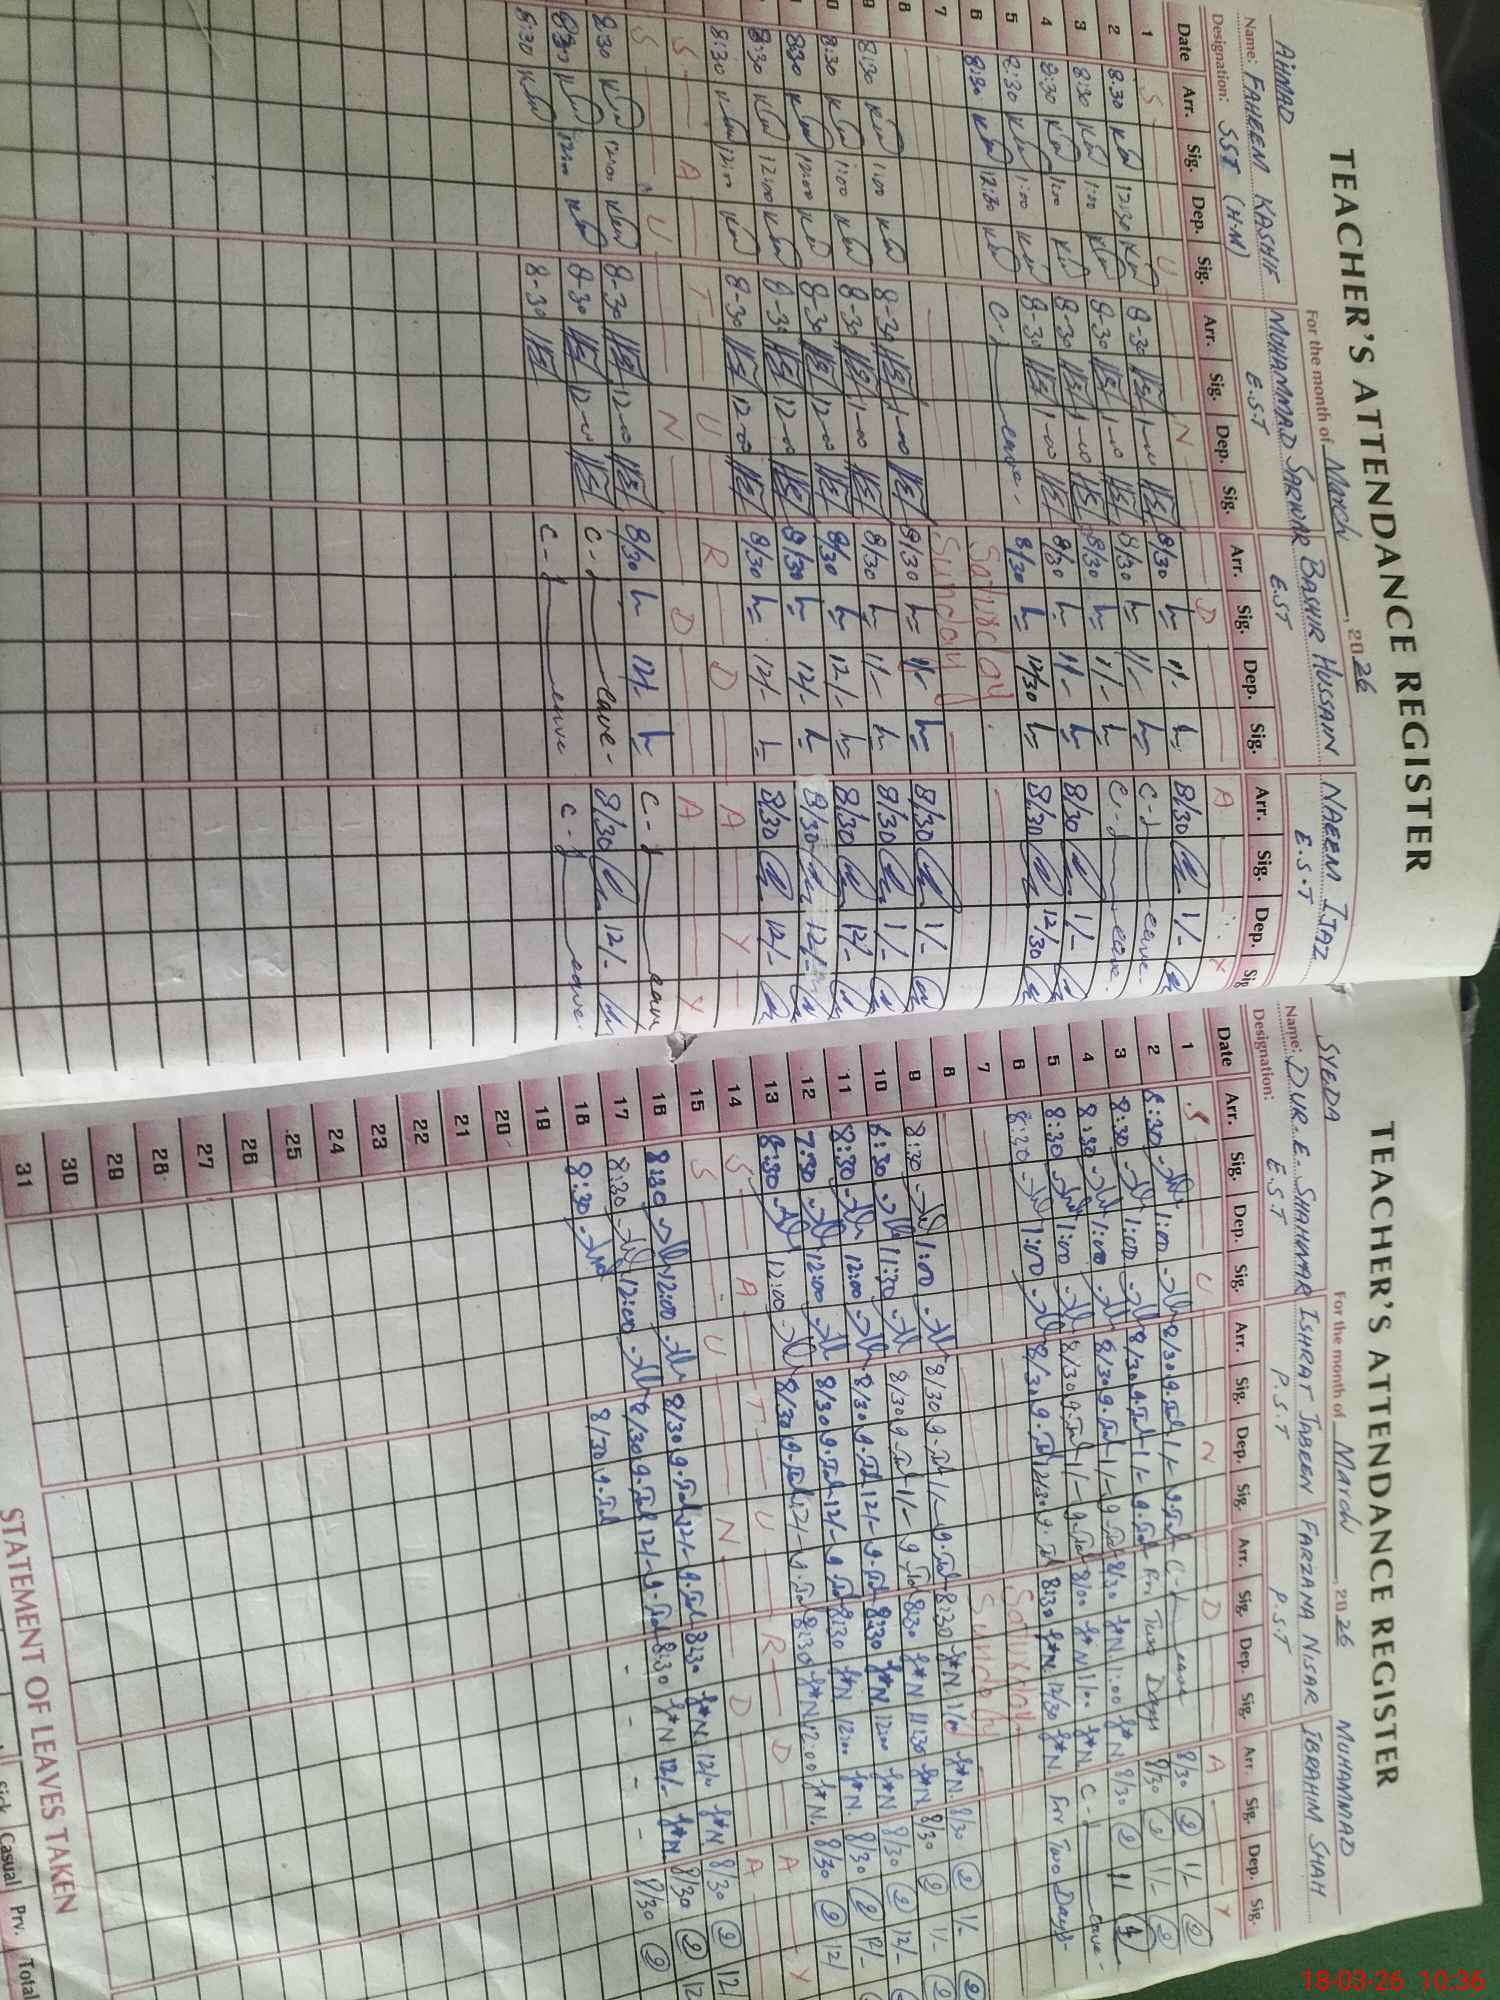 TEACHER'S ATTENDANCE REGISTER
For the month of March, 2026
AHMAD
Name: FAHEEM KASHIF MOHAMMAD SARWAR BASHIR HUSSAIN NAEEM IJAZ
Designation: SST (H.M) E.S.T E.ST E.S.T
Date Arr. Sig. Dep. Sig. Arr. Sig. Dep. Sig. Arr. Sig. Dep. Sig. Arr. Sig. Dep. Sig
1 S U N D A Y
2 8:30 12:30 8-30 1-00 8/30 1/- 8/30 1/-
3 8:30 1:00 8-30 1-00 8/30 1/- C-l eave
4 8:30 1:00 8-30 1-00 8/30 1/- C-l eave
5 8:30 1:00 8-30 1-00 8/30 1/- 8/30 1/-
6 8:30 12:30 C-l eave 8/30 12/30 8/30 12/30
7 Saturday
8 Sunday
8:30 1:00 8-30 1-00 8/30 1/- 8/30 1/-
10 8:30 1:00 8-30 1-00 8/30 1/- 8/30 1/-
8:30 12:00 8-30 12-00 8/30 12/- 8/30 12/-
8:30 12:00 8-30 12-00 8/30 12/- 8/30 12/-
8:30 12:00 8-30 12-00 8/30 12/- 8/30 12/-
S A T U R D A Y
S U N D A Y
8:30 12:00 8-30 12-00 8/30 12/- C-l eave
8:30 12:00 8-30 12-00 C-l eave 8/30 12/-
8:30 8-30 C-l eave C-l eave
TEACHER'S ATTENDANCE REGISTER
For the month of March, 2026
SYEDA MUHAMMAD
Name: DUR-E-SHAHWAR ISHRAT JABEEN FARZANA NISAR IBRAHIM SHAH
Designation: E.S.T P.S.T P.S.T
Date Arr. Sig. Dep. Sig. Arr. Sig. Dep. Sig. Arr. Sig. Dep. Sig. Arr. Sig. Dep. Sig.
1 S U N D A Y
2 8:30 1:00 8/30 1/- C-l eave 8/30 1/-
3 8:30 1:00 8/30 1/- For Two Days 8/30 1/-
4 8:30 1:00 8/30 1/- 8/30 1:00 8/30 1/-
5 8:30 1:00 8/30 1/- 8/00 1/00 C-l eave
6 8:30 1:00 8/30 12/30 8:30 12/30 For Two Days
7 Saturday
8 Sunday
9 8:30 1:00 8/30 1/- 8:30 1/00 8/30 1/-
10 8:30 11:30 8/30 1/- 8:30 11:30 8/30 1/-
11 8:30 12:00 8/30 12/- 8:30 12:00 8/30 12/-
12 7:30 12:00 8/30 12/- 8:30 12:00 8/30 12/-
13 8:30 12:00 8/30 12/- 8:30 12:00 8/30 12/
14 S A T U R D A Y
15 S U N D A
16 8:30 12:00 8/30 12/- 8:30 12/- 8/30 12/
17 8:30 12:00 8/30 12/- 8:30 12/- 8/30 12
18 8:30 8/30 - - - - 8/30
19
20
21
22
23
24
25
26
27
28
29
30
31
STATEMENT OF LEAVES TAKEN
Sick Casual Prv. Total
18-03-26 10:36